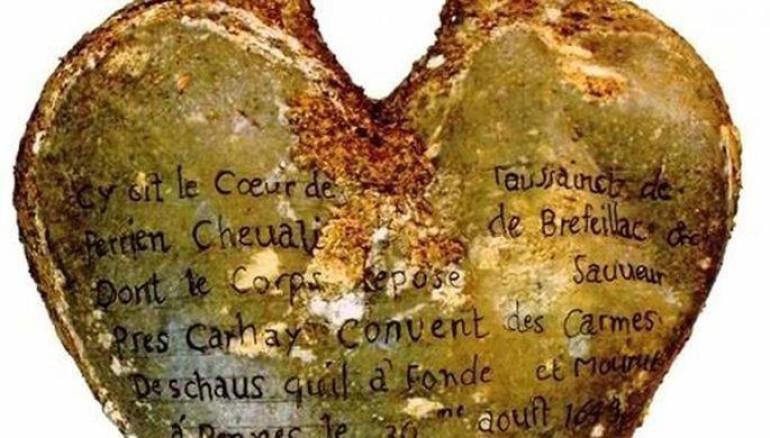 Cy Git le Cœur de Toussainct de
Perrien Cheuali de Brefeillac
Dont le Corps repose Sauueur
Pres Carhay Convent des Carmes
Deschaus quil a Fonde et Mourut
á Rennes le 30me aoust 1649